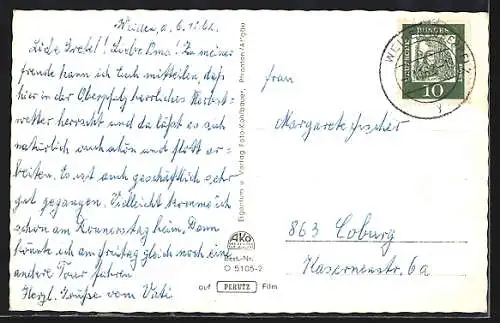 Weiden, d. 6.10.62.
Liebe Gretel! Liebe Oma! Zu meiner
Freude kann ich Euch mitteilen, daß
hier in der Oberpfalz herrliches Herbst-
wetter herrscht und da läßt es sich
natürlich auch schön und flott ar-
beiten. Es ist auch geschäftlich sehr
gut gegangen. Vielleicht komme ich
schon am Donnerstag heim. Dann
könnte ich am Freitag gleich noch eine
andere Tour fahren
Herzl. Grüße vom Vati
Eigentum u. Verlag Foto-Kohlbauer, Pfronten/Allgäu
AKO
Best.-Nr.
O 5105-2
auf PERUTZ Film
DEUTSCHE BUNDESPOST
10
WEIDEN
Frau
Margarete Fischer
863 Coburg
Kasernenstr. 6a